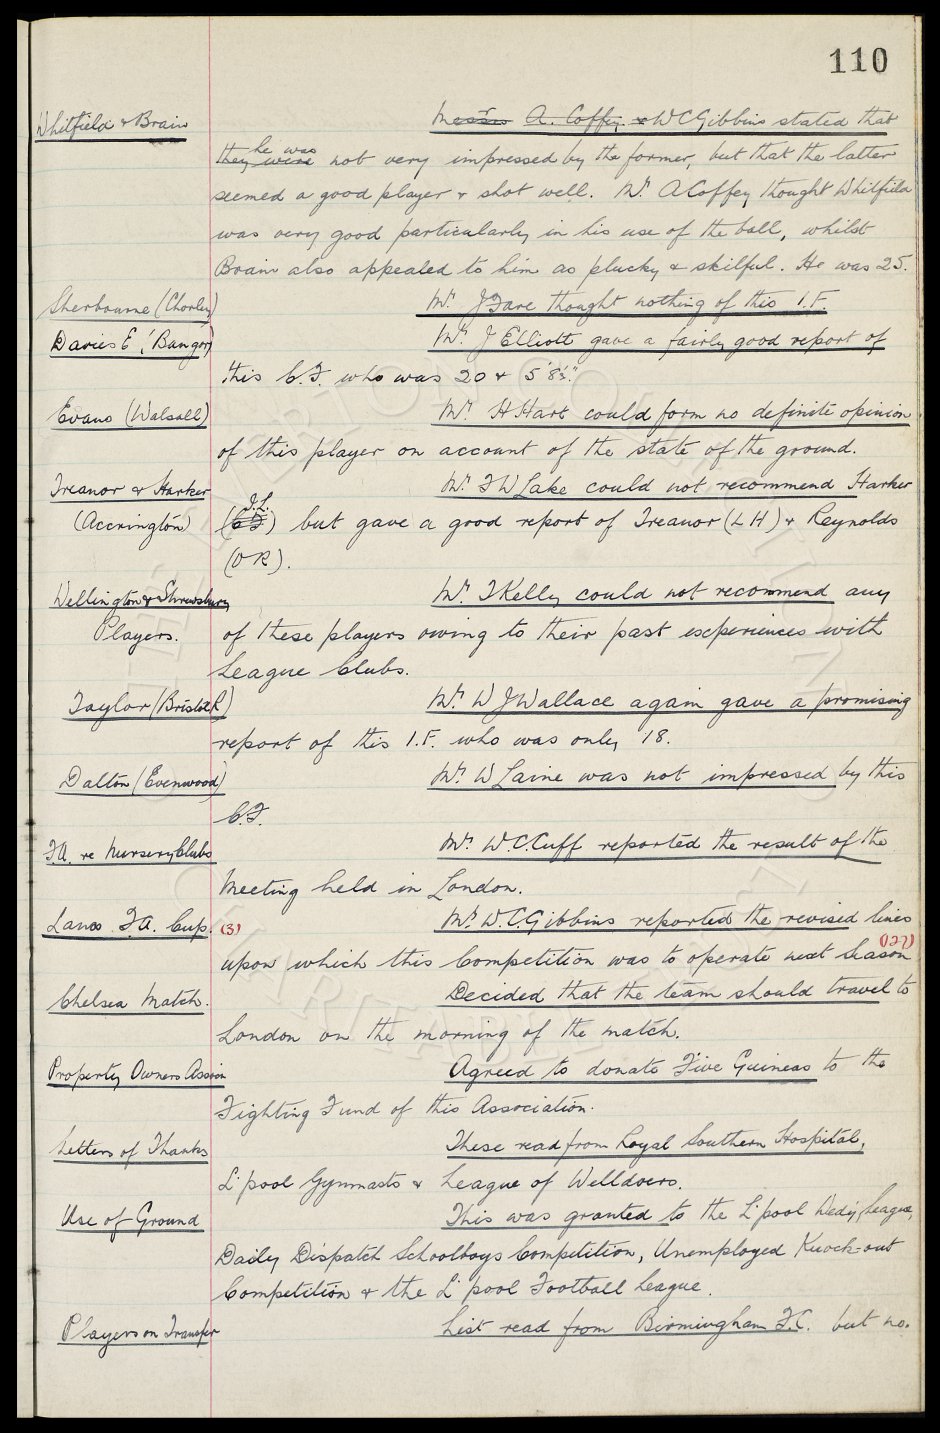 110
Whitfield & Brain Messrs A. Coffey & W C Gibbins stated that
they were he was not very impressed by the former, but that the latter
seemed a good player & shot well. Mr A Coffey thought Whitfield
was very good particularly in his use of the ball, whilst
Brain also appealed to him as plucky & skilful. He was 25.
Sherbourne (Chorley) Mr J Fare thought nothing of this I.F.
Davies E (Bangor) Mr J Elliott gave a fairly good report of
this C.F. who was 20 & 5' 8½".
Evans (Walsall) Mr H Hart could form no definite opinion
of this player on account of the state of the ground.
Treanor & Harker Mr F W Lake could not recommend Harker
(Accrington) (C F I.L.) but gave a good report of Treanor (L H) & Reynolds
(O R).
Wellington & Shrewsbury Mr T Kelly could not recommend any
Players. of these players owing to their past experiences with
League Clubs.
Taylor (Bristol R) Mr W J Wallace again gave a promising
report of this I.F. who was only 18.
Dalton (Evenwood) Mr W Laine was not impressed by this
C.F.
F.A. re Nursery Clubs Mr W.C. Cuff reported the result of the
Meeting held in London.
Lancs F.A. Cup. (3) Mr W.C. Gibbins reported the revised lines
upon which this Competition was to operate next Season (122)
Chelsea Match. Decided that the team should travel to
London on the morning of the match.
Property Owners Assocn Agreed to donate Five Guineas to the
Fighting Fund of this Association.
Letters of Thanks These read from Royal Southern Hospital,
L'pool Gymnasts & League of Welldoers.
Use of Ground This was granted to the L'pool Wed'y League,
Daily Dispatch Schoolboys Competition, Unemployed Knock-out
Competition & the L'pool Football League.
Players on Transfer List read from Birmingham F.C. but no.
THE EVERTON COLLECTION
CHARITABLE TRUST